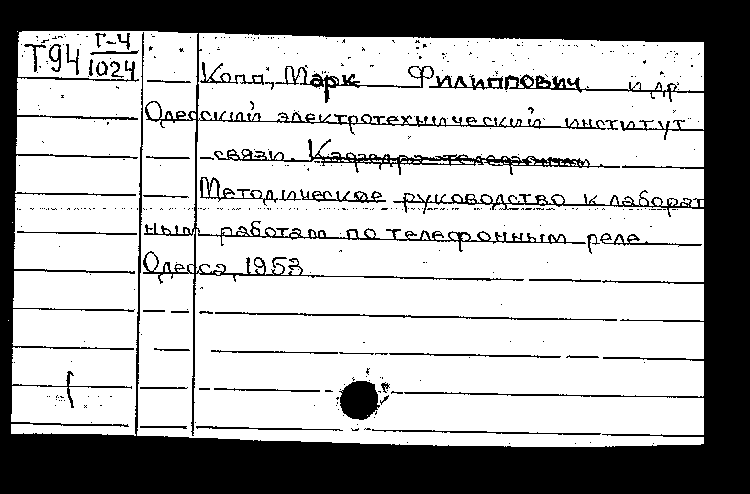 Т94 Г-4
1024
Копп, Марк Филиппович и др
Одесский электротехнический институт
связи. Кафедра телефонии.
Методическое руководство к лаборат
ным работам по телефонным реле.
Одесса, 1953